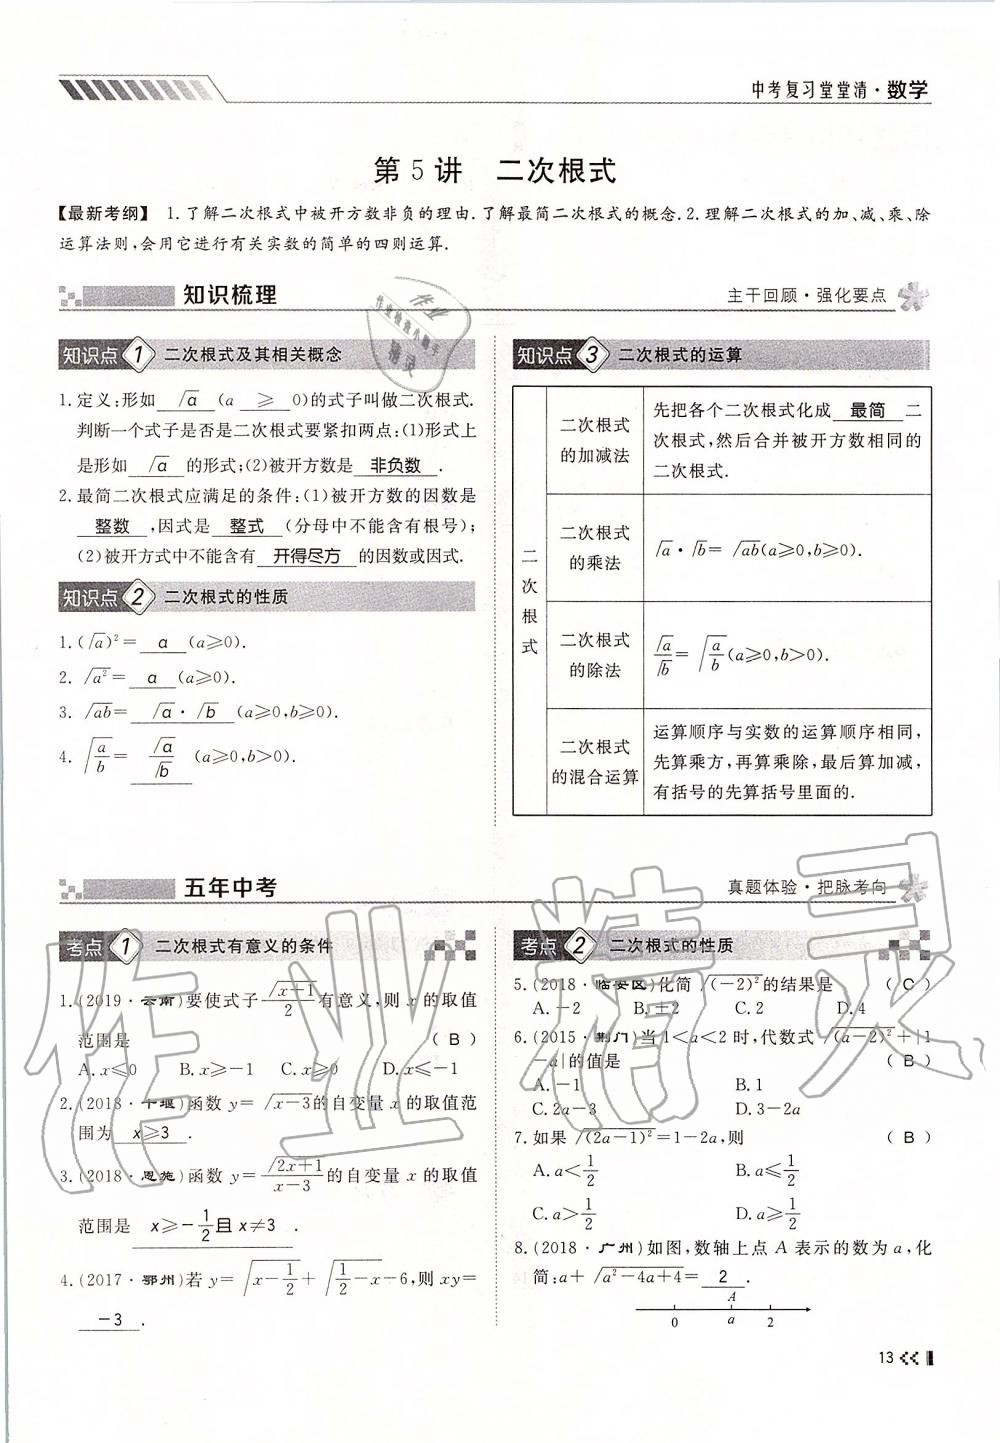 中考复习堂堂清·数学
第 5 讲　二次根式
【最新考纲】 1.了解二次根式中被开方数非负的理由.了解最简二次根式的概念.2.理解二次根式的加、减、乘、除
运算法则,会用它进行有关实数的简单的四则运算.
知识梳理
主干回顾·强化要点
知识点 1 二次根式及其相关概念
1.定义:形如 √a (a ≥ 0)的式子叫做二次根式.
判断一个式子是否是二次根式要紧扣两点:(1)形式上
是形如 √a 的形式;(2)被开方数是 非负数 .
2.最简二次根式应满足的条件:(1)被开方数的因数是
整数 ,因式是 整式 (分母中不能含有根号);
(2)被开方式中不能含有 开得尽方 的因数或因式.
知识点 2 二次根式的性质
1.(√a)²= a (a≥0).
2. √a²= a (a≥0).
3. √ab= √a·√b (a≥0,b≥0).
4. √(a/b)= √a/√b (a≥0,b>0).
知识点 3 二次根式的运算
二次根式
二次根式
的加减法
先把各个二次根式化成 最简 二
次根式,然后合并被开方数相同的
二次根式.
二次根式
的乘法
√a·√b=√ab(a≥0,b≥0).
二次根式
的除法
√a/√b=√(a/b)(a≥0,b>0).
二次根式
的混合运算
运算顺序与实数的运算顺序相同,
先算乘方,再算乘除,最后算加减,
有括号的先算括号里面的.
五年中考
真题体验·把脉考向
考点 1 二次根式有意义的条件
1.(2019·云南)要使式子√(x−1)/2有意义,则 x 的取值
范围是 ( B )
A.x≤0 B.x≥−1 C.x≥0 D.x≤−1
2.(2018·十堰)函数 y=√(x−3)的自变量 x 的取值范
围为 x≥3 .
3.(2018·恩施)函数 y=√(2x+1)/(x−3)的自变量 x 的取值
范围是 x≥−1/2且 x≠3 .
4.(2017·鄂州)若 y=√(x−1/2)+√(1/2−x)−6,则 xy=
−3 .
考点 2 二次根式的性质
5.(2018·临安区)化简 √(−2)²的结果是 ( C )
A.−2 B.±2 C.2 D.4
6.(2015·荆门)当 1<a<2 时,代数式 √(a−2)²+|1
−a|的值是 ( B )
A.−1 B.1
C.2a−3 D.3−2a
7.如果 √(2a−1)²=1−2a,则 ( B )
A.a<1/2 B.a≤1/2
C.a>1/2 D.a≥1/2
8.(2018·广州)如图,数轴上点 A 表示的数为 a,化
简:a+√(a²−4a+4)= 2 .
A
0 a 2
13
作业精灵
作业
作业检查小助手
精灵